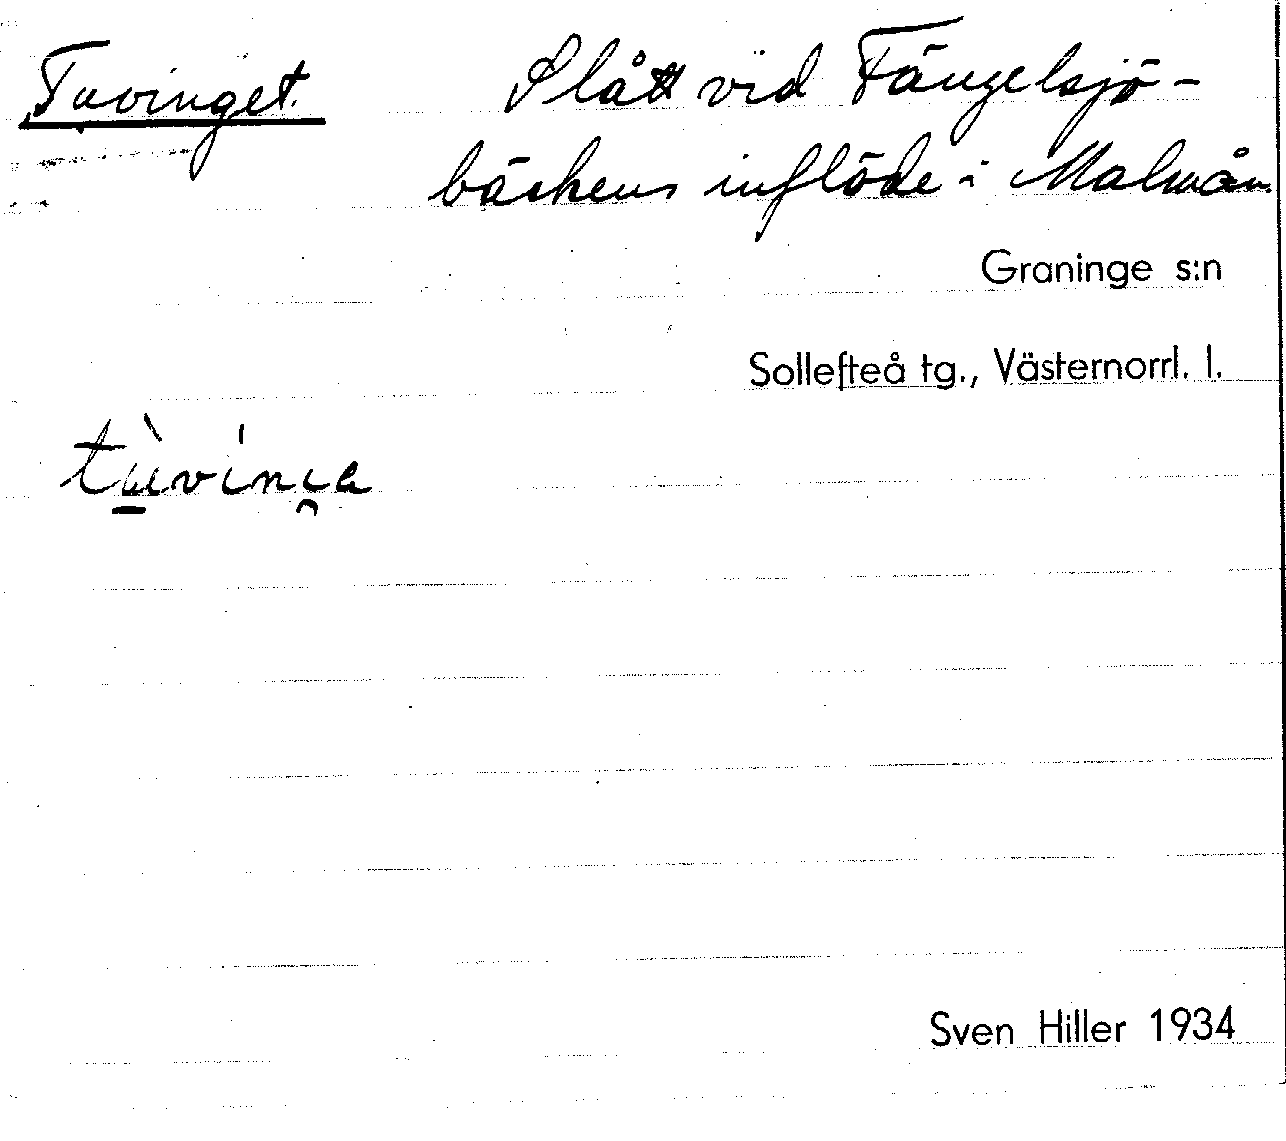 Tuvinget. Slått vid Fängelsjö-
bäckens inflöde i Malmån.
Graninge s:n
Sollefteå tg., Västernorrl. l.
Sven Hiller 1934